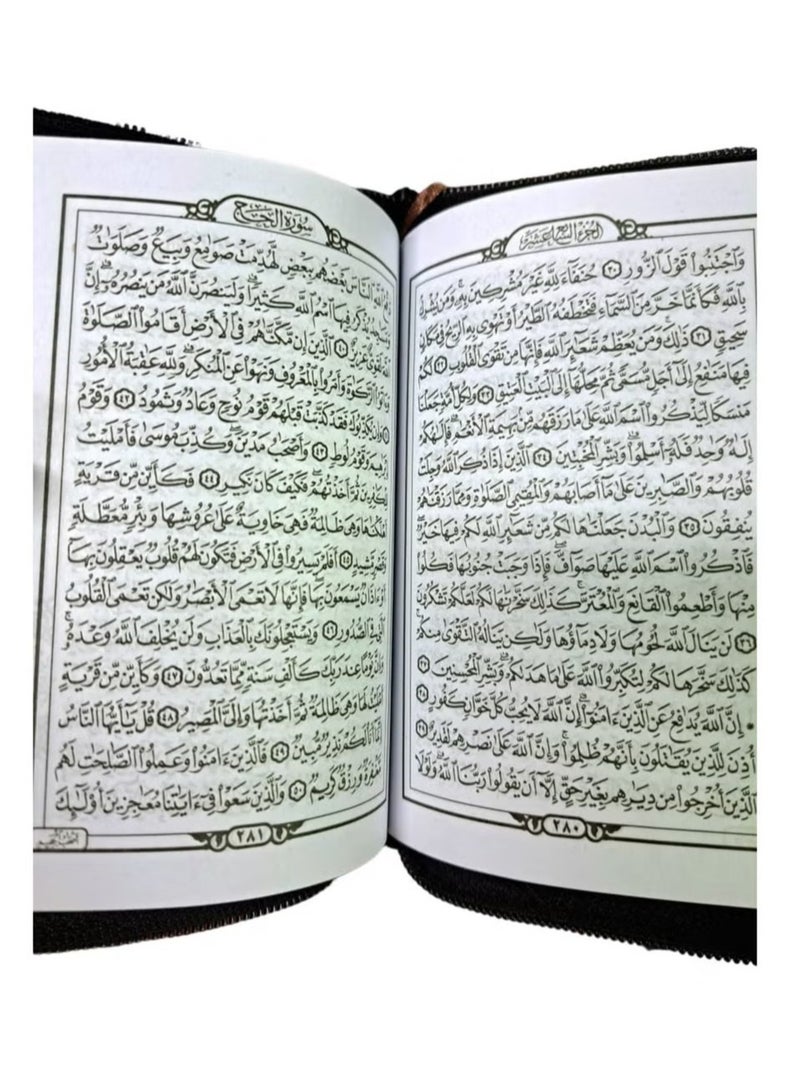 الجزء السابع عشر
وَٱجْتَنِبُوا۟ قَوْلَ ٱلزُّورِ ٣٠ حُنَفَآءَ لِلَّهِ غَيْرَ مُشْرِكِينَ بِهِۦ وَمَن يُشْرِكْ
بِٱللَّهِ فَكَأَنَّمَا خَرَّ مِنَ ٱلسَّمَآءِ فَتَخْطَفُهُ ٱلطَّيْرُ أَوْ تَهْوِى بِهِ ٱلرِّيحُ فِى مَكَانٍ
سَحِيقٍ ٣١ ذَٰلِكَ وَمَن يُعَظِّمْ شَعَٰٓئِرَ ٱللَّهِ فَإِنَّهَا مِن تَقْوَى ٱلْقُلُوبِ ٣٢ لَكُمْ
فِيهَا مَنَٰفِعُ إِلَىٰٓ أَجَلٍ مُّسَمًّى ثُمَّ مَحِلُّهَآ إِلَى ٱلْبَيْتِ ٱلْعَتِيقِ ٣٣ وَلِكُلِّ أُمَّةٍ جَعَلْنَا
مَنسَكًا لِّيَذْكُرُوا۟ ٱسْمَ ٱللَّهِ عَلَىٰ مَا رَزَقَهُم مِّنۢ بَهِيمَةِ ٱلْأَنْعَٰمِ فَإِلَٰهُكُمْ
إِلَٰهٌ وَٰحِدٌ فَلَهُۥٓ أَسْلِمُوا۟ وَبَشِّرِ ٱلْمُخْبِتِينَ ٣٤ ٱلَّذِينَ إِذَا ذُكِرَ ٱللَّهُ وَجِلَتْ
قُلُوبُهُمْ وَٱلصَّٰبِرِينَ عَلَىٰ مَآ أَصَابَهُمْ وَٱلْمُقِيمِى ٱلصَّلَوٰةِ وَمِمَّا رَزَقْنَٰهُمْ
يُنفِقُونَ ٣٥ وَٱلْبُدْنَ جَعَلْنَٰهَا لَكُم مِّن شَعَٰٓئِرِ ٱللَّهِ لَكُمْ فِيهَا خَيْرٌ
فَٱذْكُرُوا۟ ٱسْمَ ٱللَّهِ عَلَيْهَا صَوَآفَّ فَإِذَا وَجَبَتْ جُنُوبُهَا فَكُلُوا۟
مِنْهَا وَأَطْعِمُوا۟ ٱلْقَانِعَ وَٱلْمُعْتَرَّ كَذَٰلِكَ سَخَّرْنَٰهَا لَكُمْ لَعَلَّكُمْ تَشْكُرُونَ
٣٦ لَن يَنَالَ ٱللَّهَ لُحُومُهَا وَلَا دِمَآؤُهَا وَلَٰكِن يَنَالُهُ ٱلتَّقْوَىٰ مِنكُمْ
كَذَٰلِكَ سَخَّرَهَا لَكُمْ لِتُكَبِّرُوا۟ ٱللَّهَ عَلَىٰ مَا هَدَىٰكُمْ وَبَشِّرِ ٱلْمُحْسِنِينَ ٣٧
إِنَّ ٱللَّهَ يُدَٰفِعُ عَنِ ٱلَّذِينَ ءَامَنُوٓا۟ إِنَّ ٱللَّهَ لَا يُحِبُّ كُلَّ خَوَّانٍ كَفُورٍ ٣٨
أُذِنَ لِلَّذِينَ يُقَٰتَلُونَ بِأَنَّهُمْ ظُلِمُوا۟ وَإِنَّ ٱللَّهَ عَلَىٰ نَصْرِهِمْ لَقَدِيرٌ ٣٩
ٱلَّذِينَ أُخْرِجُوا۟ مِن دِيَٰرِهِم بِغَيْرِ حَقٍّ إِلَّآ أَن يَقُولُوا۟ رَبُّنَا ٱللَّهُ وَلَوْلَا
٢٨٠
سورة الحج
ٱللَّهِ ٱلنَّاسَ بَعْضَهُم بِبَعْضٍ لَّهُدِّمَتْ صَوَٰمِعُ وَبِيَعٌ وَصَلَوَٰتٌ
يُذْكَرُ فِيهَا ٱسْمُ ٱللَّهِ كَثِيرًا وَلَيَنصُرَنَّ ٱللَّهُ مَن يَنصُرُهُۥٓ إِنَّ
لَقَوِىٌّ عَزِيزٌ ٤٠ ٱلَّذِينَ إِن مَّكَّنَّٰهُمْ فِى ٱلْأَرْضِ أَقَامُوا۟ ٱلصَّلَوٰةَ
ٱلزَّكَوٰةَ وَأَمَرُوا۟ بِٱلْمَعْرُوفِ وَنَهَوْا۟ عَنِ ٱلْمُنكَرِ وَلِلَّهِ عَٰقِبَةُ ٱلْأُمُورِ
٤١ وَإِن يُكَذِّبُوكَ فَقَدْ كَذَّبَتْ قَبْلَهُمْ قَوْمُ نُوحٍ وَعَادٌ وَثَمُودُ ٤٢ وَقَوْمُ
إِبْرَٰهِيمَ وَقَوْمُ لُوطٍ ٤٣ وَأَصْحَٰبُ مَدْيَنَ وَكُذِّبَ مُوسَىٰ فَأَمْلَيْتُ
لِلْكَٰفِرِينَ ثُمَّ أَخَذْتُهُمْ فَكَيْفَ كَانَ نَكِيرِ ٤٤ فَكَأَيِّن مِّن قَرْيَةٍ
أَهْلَكْنَٰهَا وَهِىَ ظَالِمَةٌ فَهِىَ خَاوِيَةٌ عَلَىٰ عُرُوشِهَا وَبِئْرٍ مُّعَطَّلَةٍ
وَقَصْرٍ مَّشِيدٍ ٤٥ أَفَلَمْ يَسِيرُوا۟ فِى ٱلْأَرْضِ فَتَكُونَ لَهُمْ قُلُوبٌ يَعْقِلُونَ بِهَآ
أَوْ ءَاذَانٌ يَسْمَعُونَ بِهَا فَإِنَّهَا لَا تَعْمَى ٱلْأَبْصَٰرُ وَلَٰكِن تَعْمَى ٱلْقُلُوبُ
ٱلَّتِى فِى ٱلصُّدُورِ ٤٦ وَيَسْتَعْجِلُونَكَ بِٱلْعَذَابِ وَلَن يُخْلِفَ ٱللَّهُ وَعْدَهُۥ
وَإِنَّ يَوْمًا عِندَ رَبِّكَ كَأَلْفِ سَنَةٍ مِّمَّا تَعُدُّونَ ٤٧ وَكَأَيِّن مِّن قَرْيَةٍ
أَمْلَيْتُ لَهَا وَهِىَ ظَالِمَةٌ ثُمَّ أَخَذْتُهَا وَإِلَىَّ ٱلْمَصِيرُ ٤٨ قُلْ يَٰٓأَيُّهَا ٱلنَّاسُ
إِنَّمَآ أَنَا۠ لَكُمْ نَذِيرٌ مُّبِينٌ ٤٩ فَٱلَّذِينَ ءَامَنُوا۟ وَعَمِلُوا۟ ٱلصَّٰلِحَٰتِ لَهُم
مَّغْفِرَةٌ وَرِزْقٌ كَرِيمٌ ٥٠ وَٱلَّذِينَ سَعَوْا۟ فِىٓ ءَايَٰتِنَا مُعَٰجِزِينَ أُو۟لَٰٓئِكَ
٢٨١